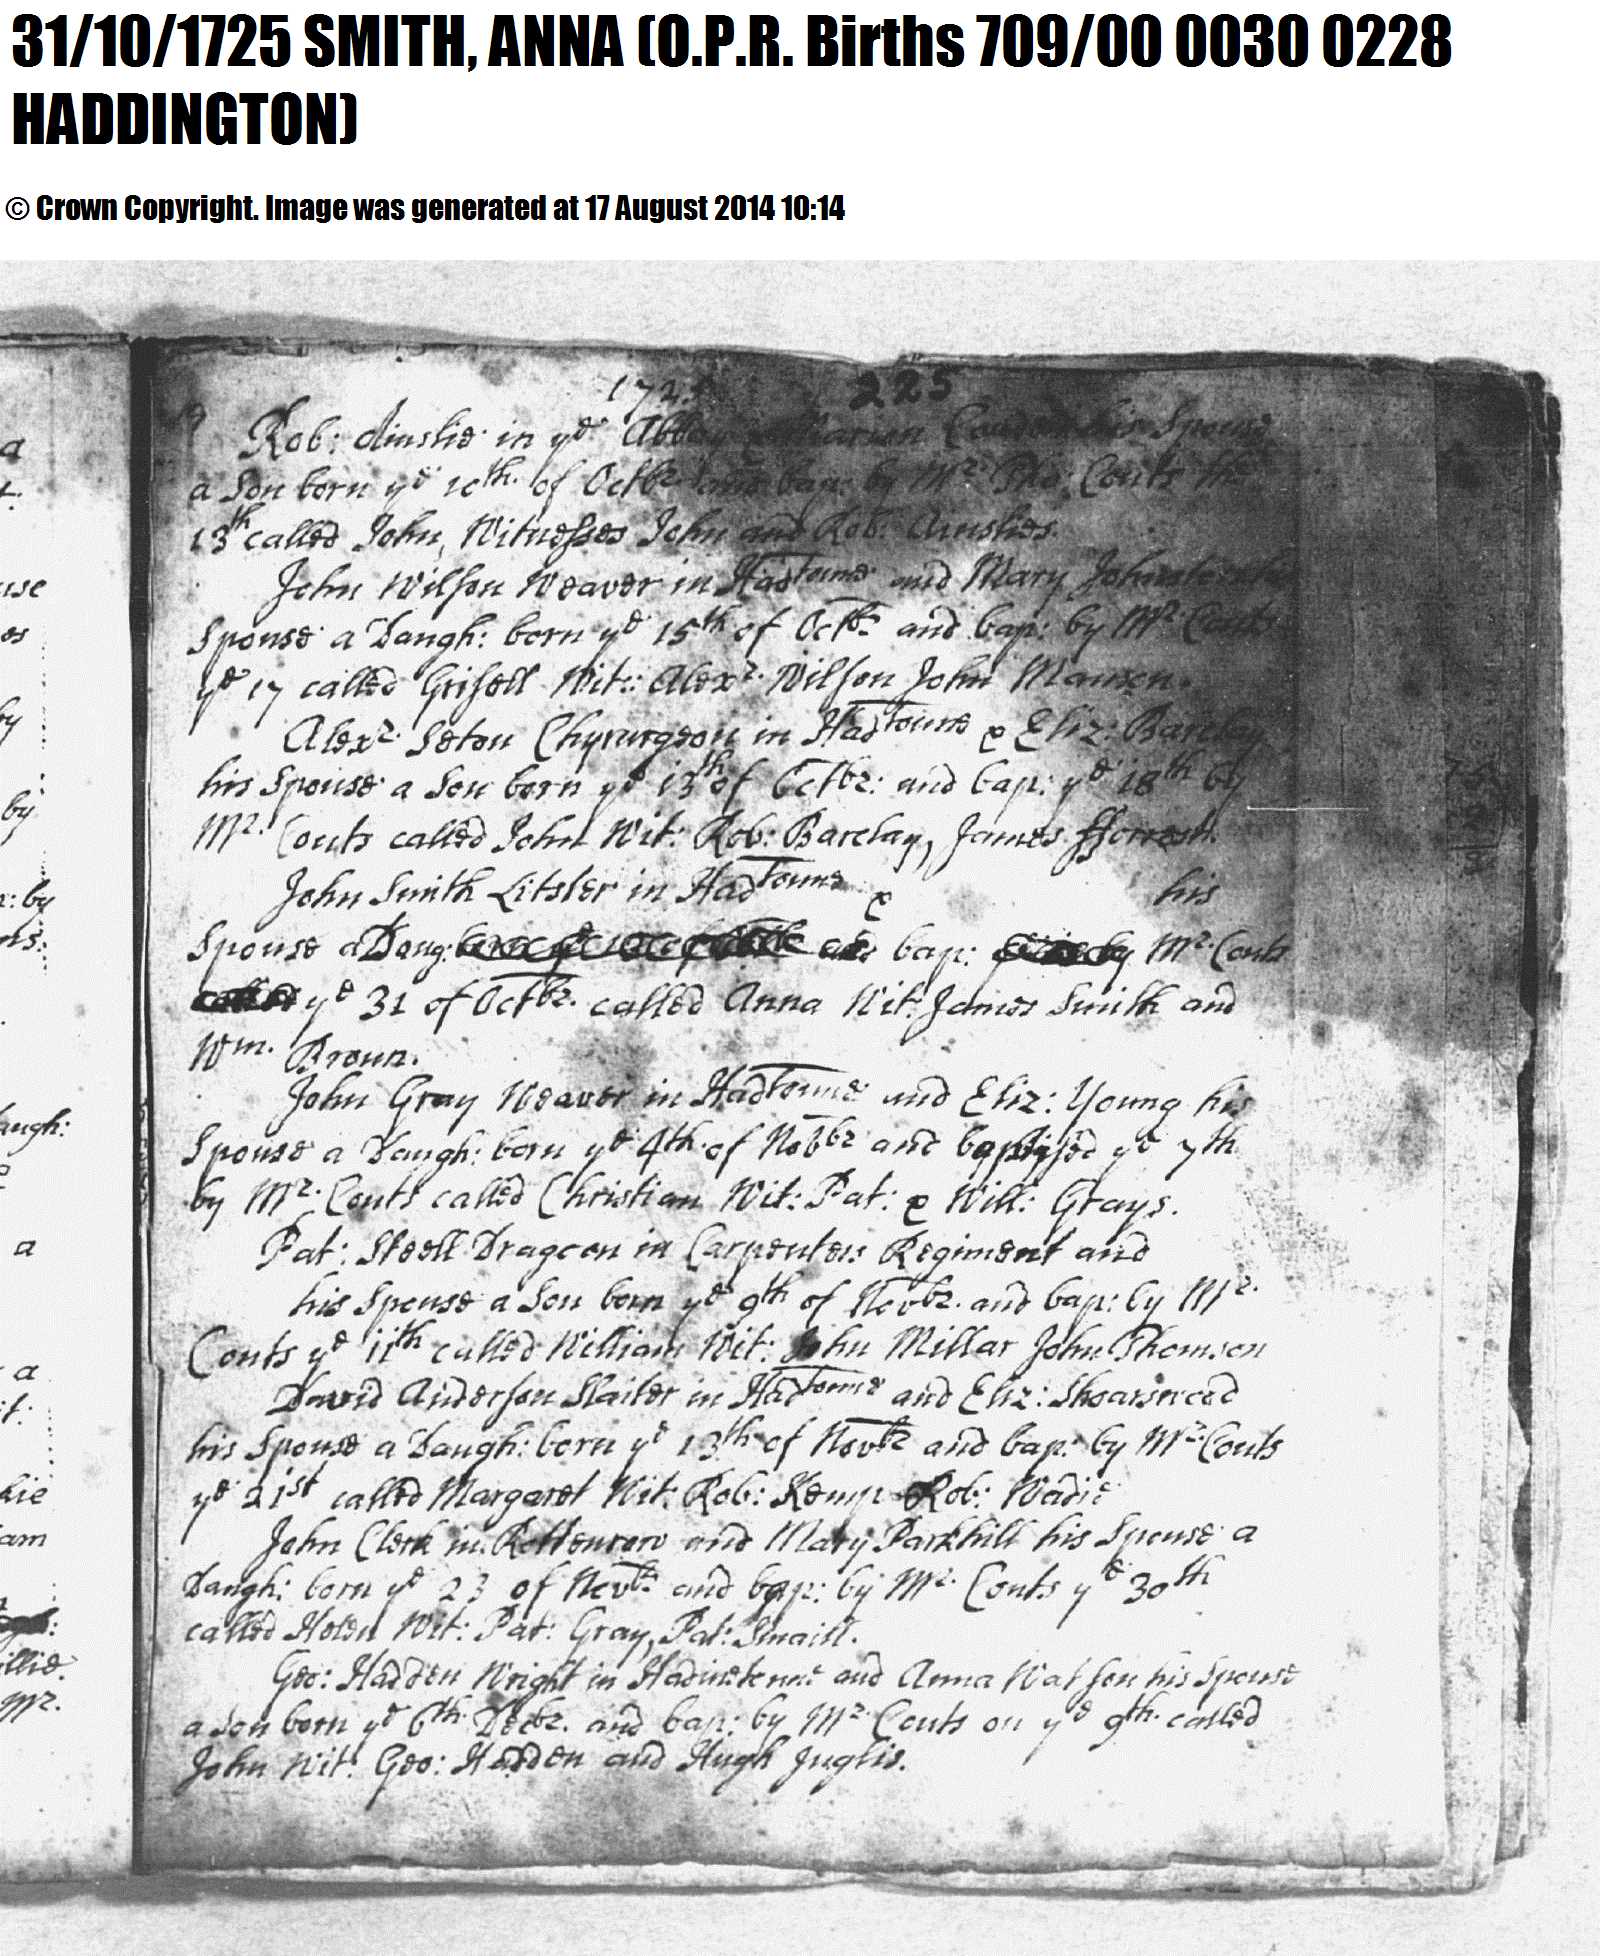 31/10/1725 SMITH, ANNA (O.P.R. Births 709/00 0030 0228
HADDINGTON)
© Crown Copyright. Image was generated at 17 August 2014 10:14
1725 225
Rob: Ainslie in ye Abbay his Spouse
a Son born ye 10th. of Octbr. and bap: by Mr. Couts the
13th called John, Witnesses John and Rob: Ainslies.
John Wilson Weaver in Hadtoune and Mary Johnston his
Spouse a Daugh: born ye 15th of Octbr and bap: by Mr. Couts
ye 17 called Grisell Wit: Alexr. Wilson John Manson.
Alexr. Seton Chyrurgeon in Hadtoune & Eliz: Barclay
his Spouse a Son born ye 13th of Octbr: and bap: ye 18th by
Mr. Couts called John Wit: Rob: Barclay, James fforrest.
John Smith Litster in Hadtoune & his
Spouse a Daug: and bap: by Mr. Couts
called ye 31 of Octbr. called Anna Wit: James Smith and
Wm. Broun.
John Gray Weaver in Hadtoune and Eliz: Young his
Spouse a Daugh: born ye 4th of Nobbr and baptised ye 7th
by Mr. Couts called Christian Wit: Pat: & Will: Grays.
Pat: Steell Dragoon in Carpenters Regiment and
his Spouse a Son born ye 9th of Novbr. and bap: by Mr.
Couts ye 11th called William Wit: John Millar John Thomson
David Anderson Slaiter in Hadtoune and Eliz: Shoarswood
his Spouse a Daugh: born ye 13th of Novbr and bap: by Mr. Couts
ye 21st called Margaret Wit: Rob: Kemp Rob: Wadie
John Clerk in Rottenrow and Mary Parkhill his Spouse a
Daugh: born ye 23 of Novbr and bap: by Mr. Couts ye 30th
called Helen Wit: Pat: Gray, Pat: Smaill.
Geo: Hadden Wright in Hadintoune and Anna Watson his Spouse
a Son born ye 6th Decbr. and bap: by Mr. Couts on ye 9th. called
John Wit: Geo: Hadden and Hugh Inglis.